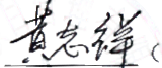 黄志祥